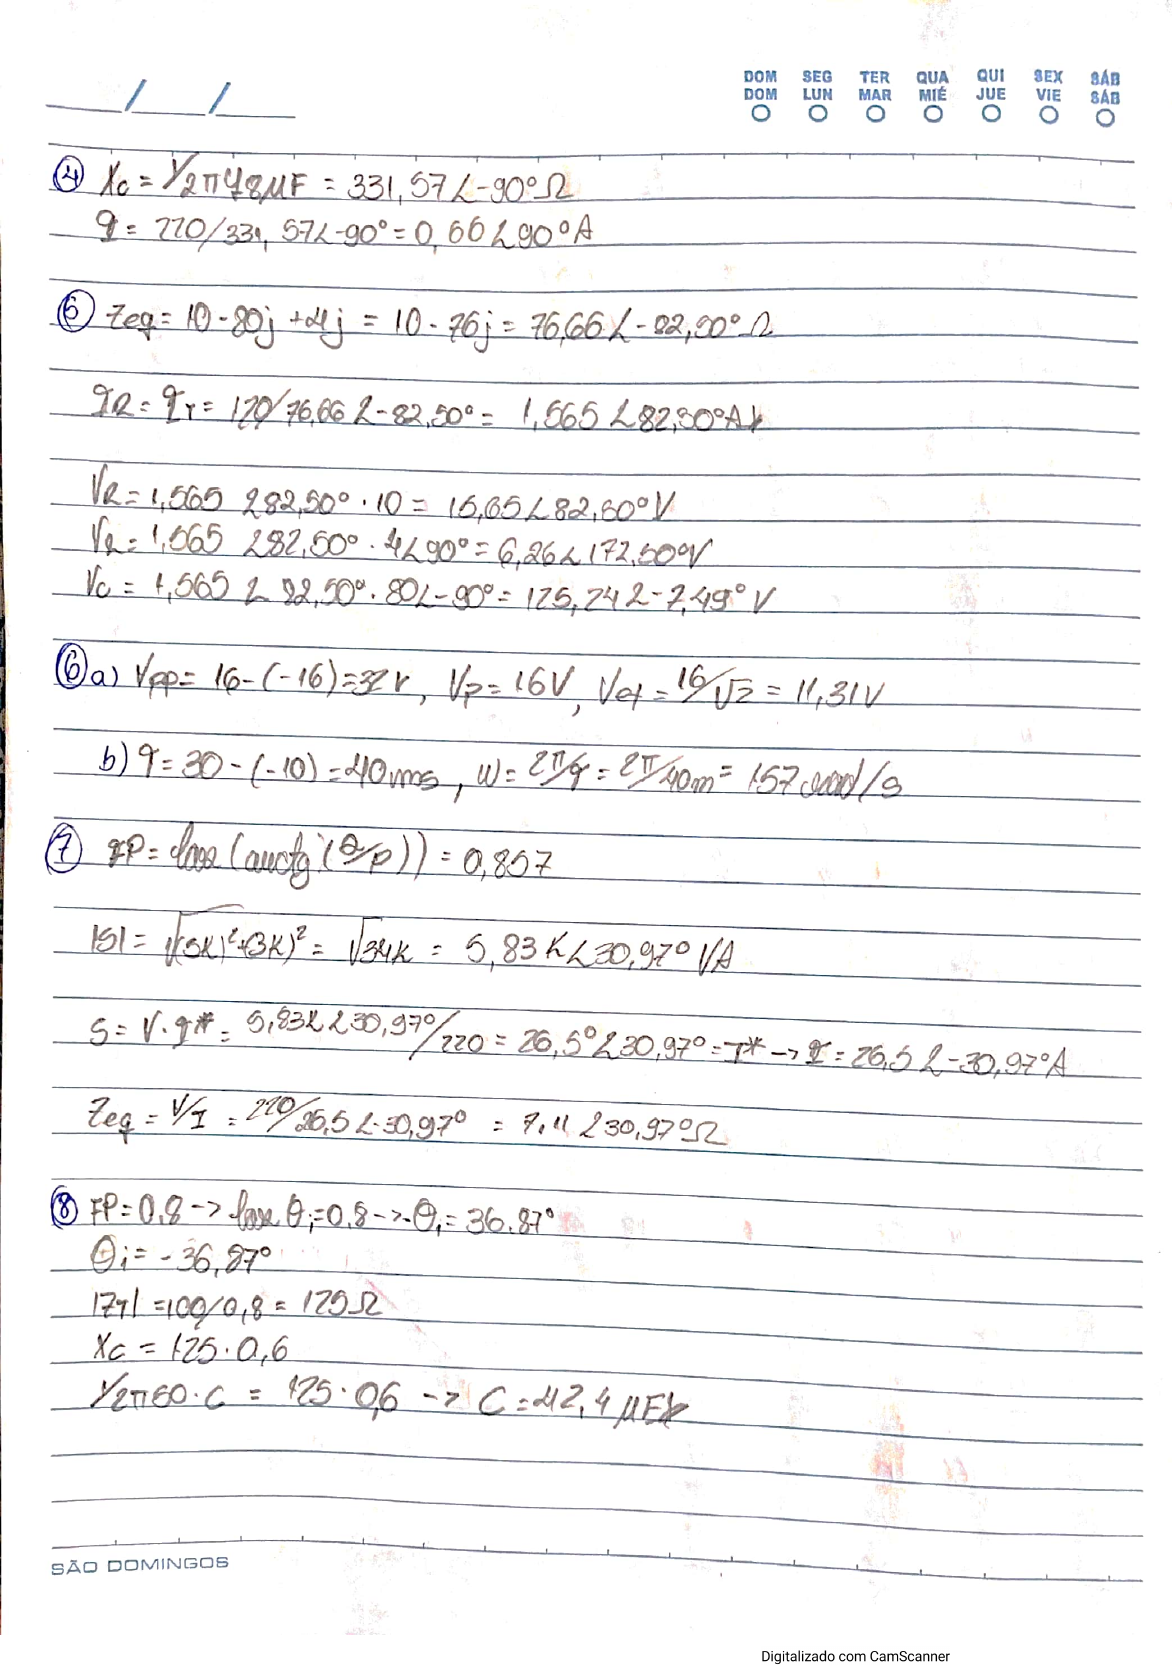 DOM SEG TER QUA QUI SEX SÁB
DOM LUN MAR MIÉ JUE VIE SÁB
__/__/__
④ Xc = 1/2πf8μF = 331,57∠-90°Ω
I = 220/331,57∠-90° = 0,66∠90°A
⑤ Zeq = 10-80j+4j = 10-76j = 76,66∠-82,50°Ω
IR = IT = 120/76,66∠-82,50° = 1,565∠82,50°A
VR = 1,565∠82,50°·10 = 15,65∠82,50°V
VL = 1,565∠82,50°·4∠90° = 6,26∠172,50°V
Vc = 1,565∠82,50°·80∠-90° = 125,24∠-7,49°V
⑥ a) Vpp = 16-(-16)=32V, Vp = 16V, Vef = 16/√2 = 11,31V
b) T = 30-(-10)=40ms, W = 2π/T = 2π/40m = 157rad/s
⑦ FP = cos(arctg(Q/P)) = 0,857
|S| = √(5K)²+(3K)² = √34K = 5,83K∠30,97°VA
S = V·I* = 5,83K∠30,97°/220 = 26,5°∠30,97° = I* -> I = 26,5∠-30,97°A
Zeq = V/I = 220/26,5∠-30,97° = 7,11∠30,97°Ω
⑧ FP = 0,8 -> cos θi=0,8 -> θi = 36,87°
θi = -36,87°
|ZT| = 100/0,8 = 125Ω
Xc = 125·0,6
1/2π50·C = 125·0,6 -> C = 42,4μF
SÃO DOMINGOS
Digitalizado com CamScanner